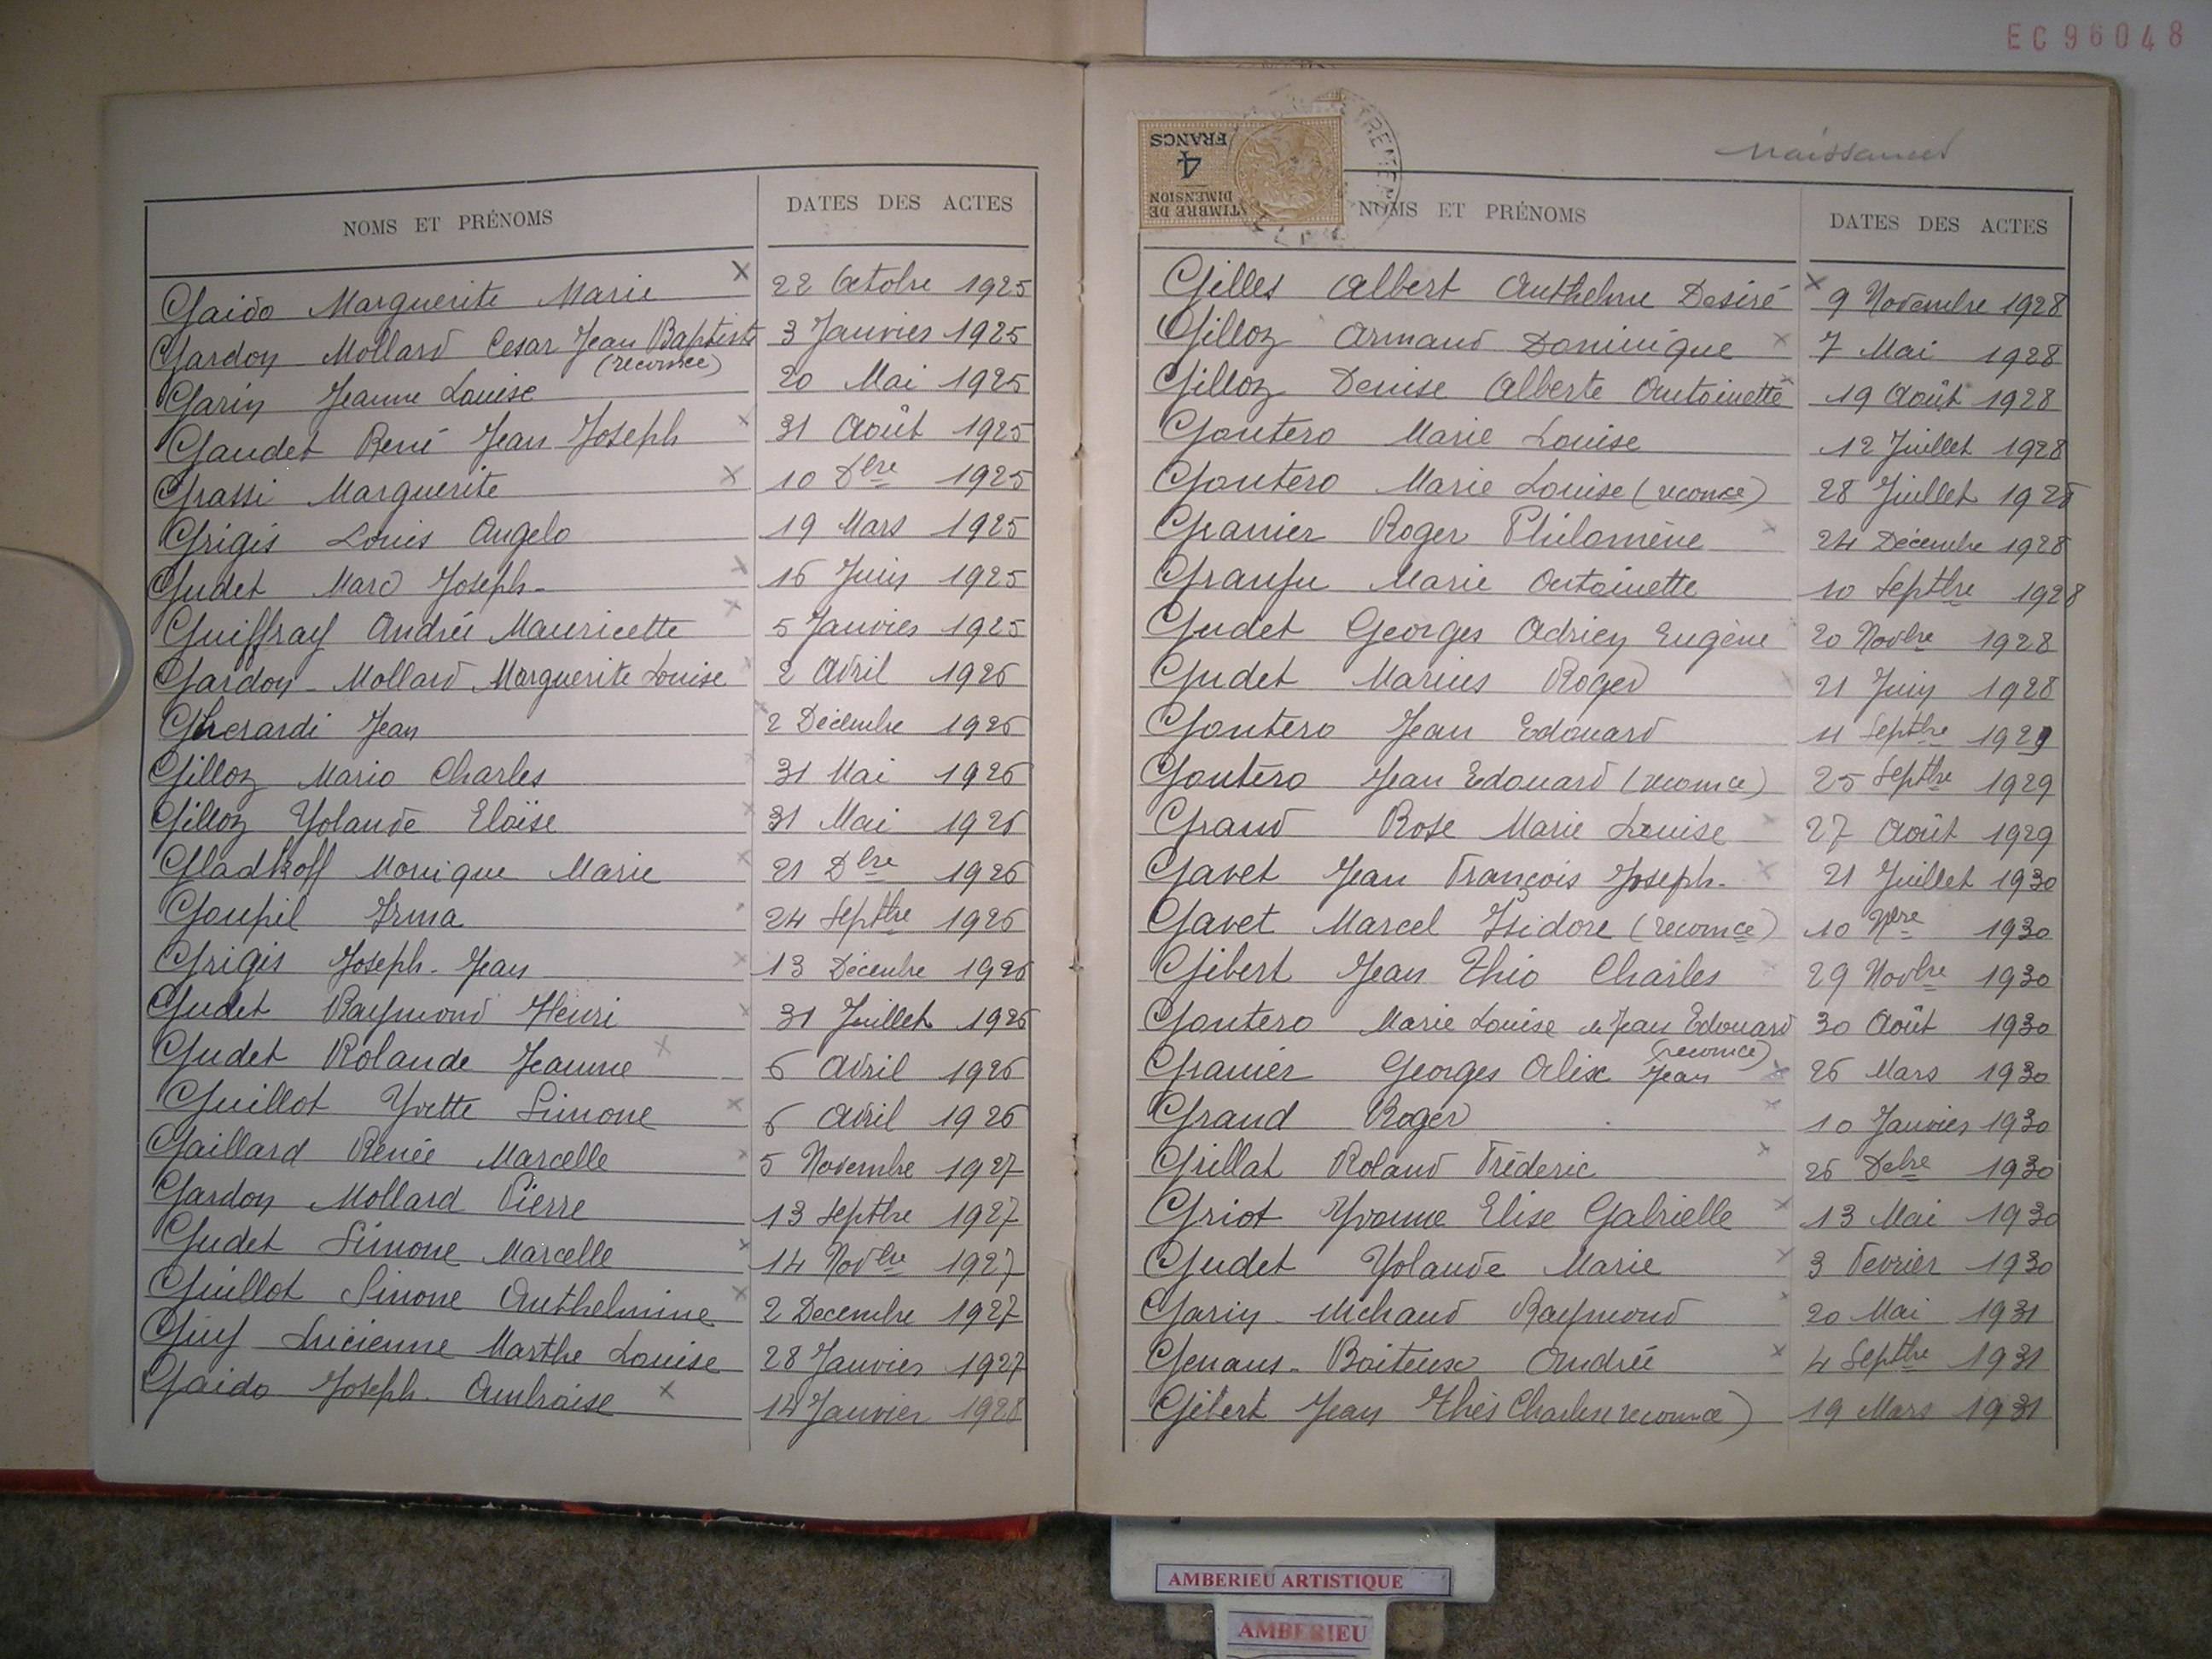 EC96048
NOMS ET PRÉNOMS DATES DES ACTES
Gaido Marguerite Marie x 22 Octobre 1925
Gardon Mollard Cesar Jean Baptiste 3 Janvier 1925
(reconnce)
Garin Jeanne Louise 20 Mai 1925
Gaudet René Jean Joseph x 31 Août 1925
Grassi Marguerite x 10 Dbre 1925
Grigis Louis Angelo 19 Mars 1925
Gudet Marc Joseph x 16 Juin 1925
Guiffray Andrée Mauricette x 5 Janvier 1925
Gardon-Mollard Marguerite Louise x 2 Avril 1926
Gherardi Jean x 2 Décembre 1926
Gilloz Mario Charles x 31 Mai 1926
Gilloz Yolande Eloïse x 31 Mai 1926
Gladkoff Monique Marie x 21 Dbre 1926
Goupil Irma 24 Septbre 1926
Grigis Joseph-Jean x 13 Décembre 1926
Gudet Raymond Henri x 31 Juillet 1926
Gudet Rolande Jeanne x 6 Avril 1926
Guillot Yvette Simone x 6 Avril 1926
Gaillard Renée Marcelle x 5 Novembre 1927
Gardon Mollard Pierre 13 Septbre 1927
Gudet Simone Marcelle x 14 Novbre 1927
Guillot Simone Anthelmine x 2 Decembre 1927
Guy Lucienne Marthe Louise 28 Janvier 1927
Gaido Joseph-Ambroise x 14 Janvier 1928
Naissances
TIMBRE DE DIMENSION
4
FRANCS
NOMS ET PRÉNOMS DATES DES ACTES
Gilles Albert Anthelme Desiré x 9 Novembre 1928
Gilloz Armand Dominique x 7 Mai 1928
Gilloz Denise Alberte Antoinette x 19 Août 1928
Gontero Marie Louise 12 Juillet 1928
Gontero Marie Louise (reconnce) 28 Juillet 1928
Granier Roger Philomène x 24 Décembre 1928
Marie Antoinette 10 Septbre 1928
Gudet Georges Adrien Eugène 20 Novbre 1928
Gudet Marius Roger x 21 Juin 1928
Gontero Jean Edouard 11 Septbre 1929
Gontéro Jean Edouard (reconnce) 25 Septbre 1929
Grand Rose Marie Louise x 27 Août 1929
Gavet Jean François Joseph x 21 Juillet 1930
Gavet Marcel Isidore (reconnce) 10 Nbre 1930
Gibert Jean Théo Charles x 29 Novbre 1930
Gontero Marie Louise & Jean Edouard 30 Août 1930
(reconnce)
Granier Georges Alix Jean x 26 Mars 1930
Grand Roger x 10 Janvier 1930
Grillat Roland Fréderic x 26 Dcbre 1930
Griot Yvonne Elise Gabrielle x 13 Mai 1930
Gudet Yolande Marie x 3 Fevrier 1930
Garin-Michaud Raymond x 20 Mai 1931
Genans-Boiteux Andrée x 4 Septbre 1931
Gibert Jean Théo Charles (reconnce) 19 Mars 1931
AMBERIEU ARTISTIQUE
AMBERIEU